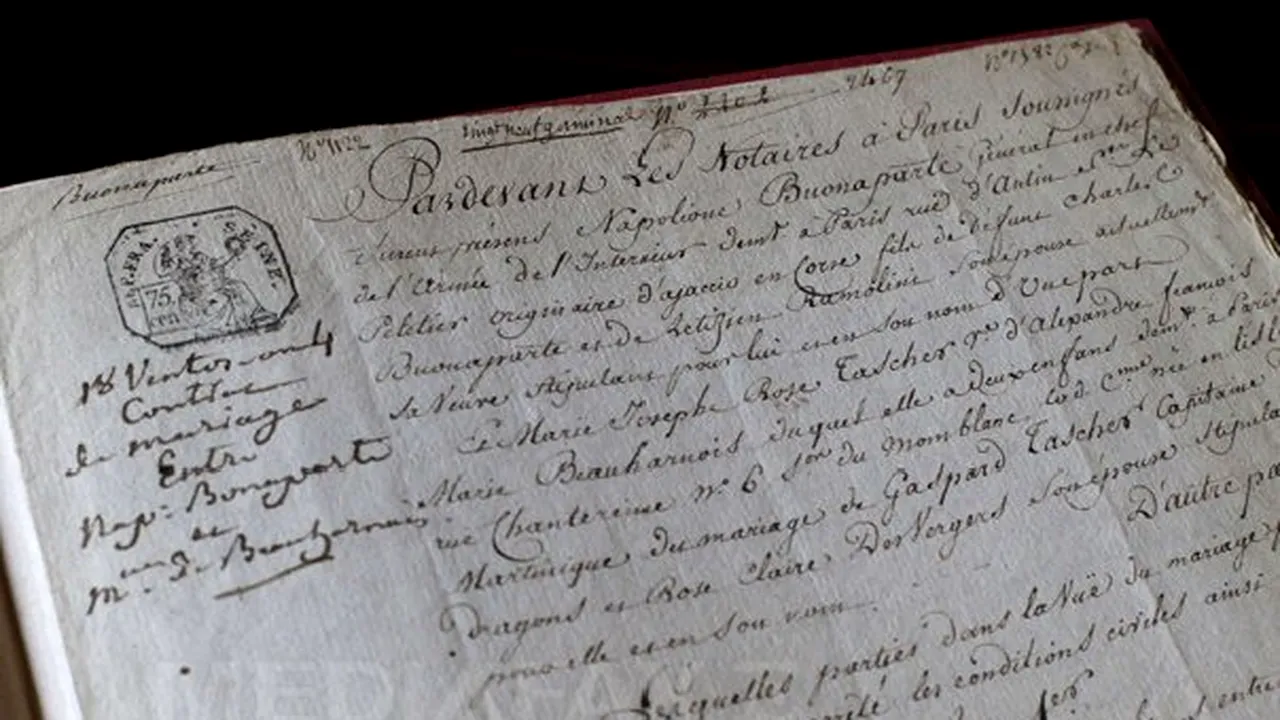 Buonaparte
N° 1122
Vingt neuf germinal N° 2467
SEINE.
75
cen
18 Ventos. an 4
Contrat
de mariage
Entre
Nap: Bonaparte
et
Mme de Beauharnais
Pardevant Les Notaires à Paris Soussignés
furent présens Napolione Buonaparte Général en chef
de l'Armée de l'Interieur demt à Paris rue d'Antin Son Le
Peletier originaire d'ajaccio en Corse fils de défunt Charles
Buonaparte et de Letizia Ramolini son épouse actuellemt
sa Veuve stipulant pour lui et en son nom D'Une part
Et Marie Josephe Rose Tascher Ve d'Alexandre françois
Marie Beauharnois duquel elle a deux enfans demte à Paris
rue Chantereine N° 6 Son du Montblanc lad Cenne née en l'isle
Martinique du mariage de Gaspard Tascher Capitaine
Dragons et Rose Claire Des Vergers son épouse stipula
pour elle et en son nom. D'autre pa
Lesquelles parties dans la Vuë du mariage
arrêté les conditions civiles ainsi
1er
entre
MEDIAFAX